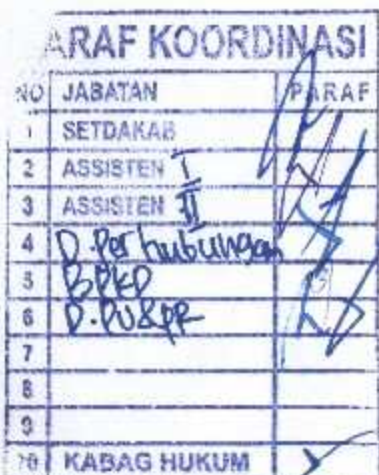 PARAF KOORDINASI
NO JABATAN PARAF
1 SETDAKAB
2 ASSISTEN I
3 ASSISTEN II
4 D. Perhubungan
5 BPKD
6 D. PU&PR
7
8
9
10 KABAG HUKUM